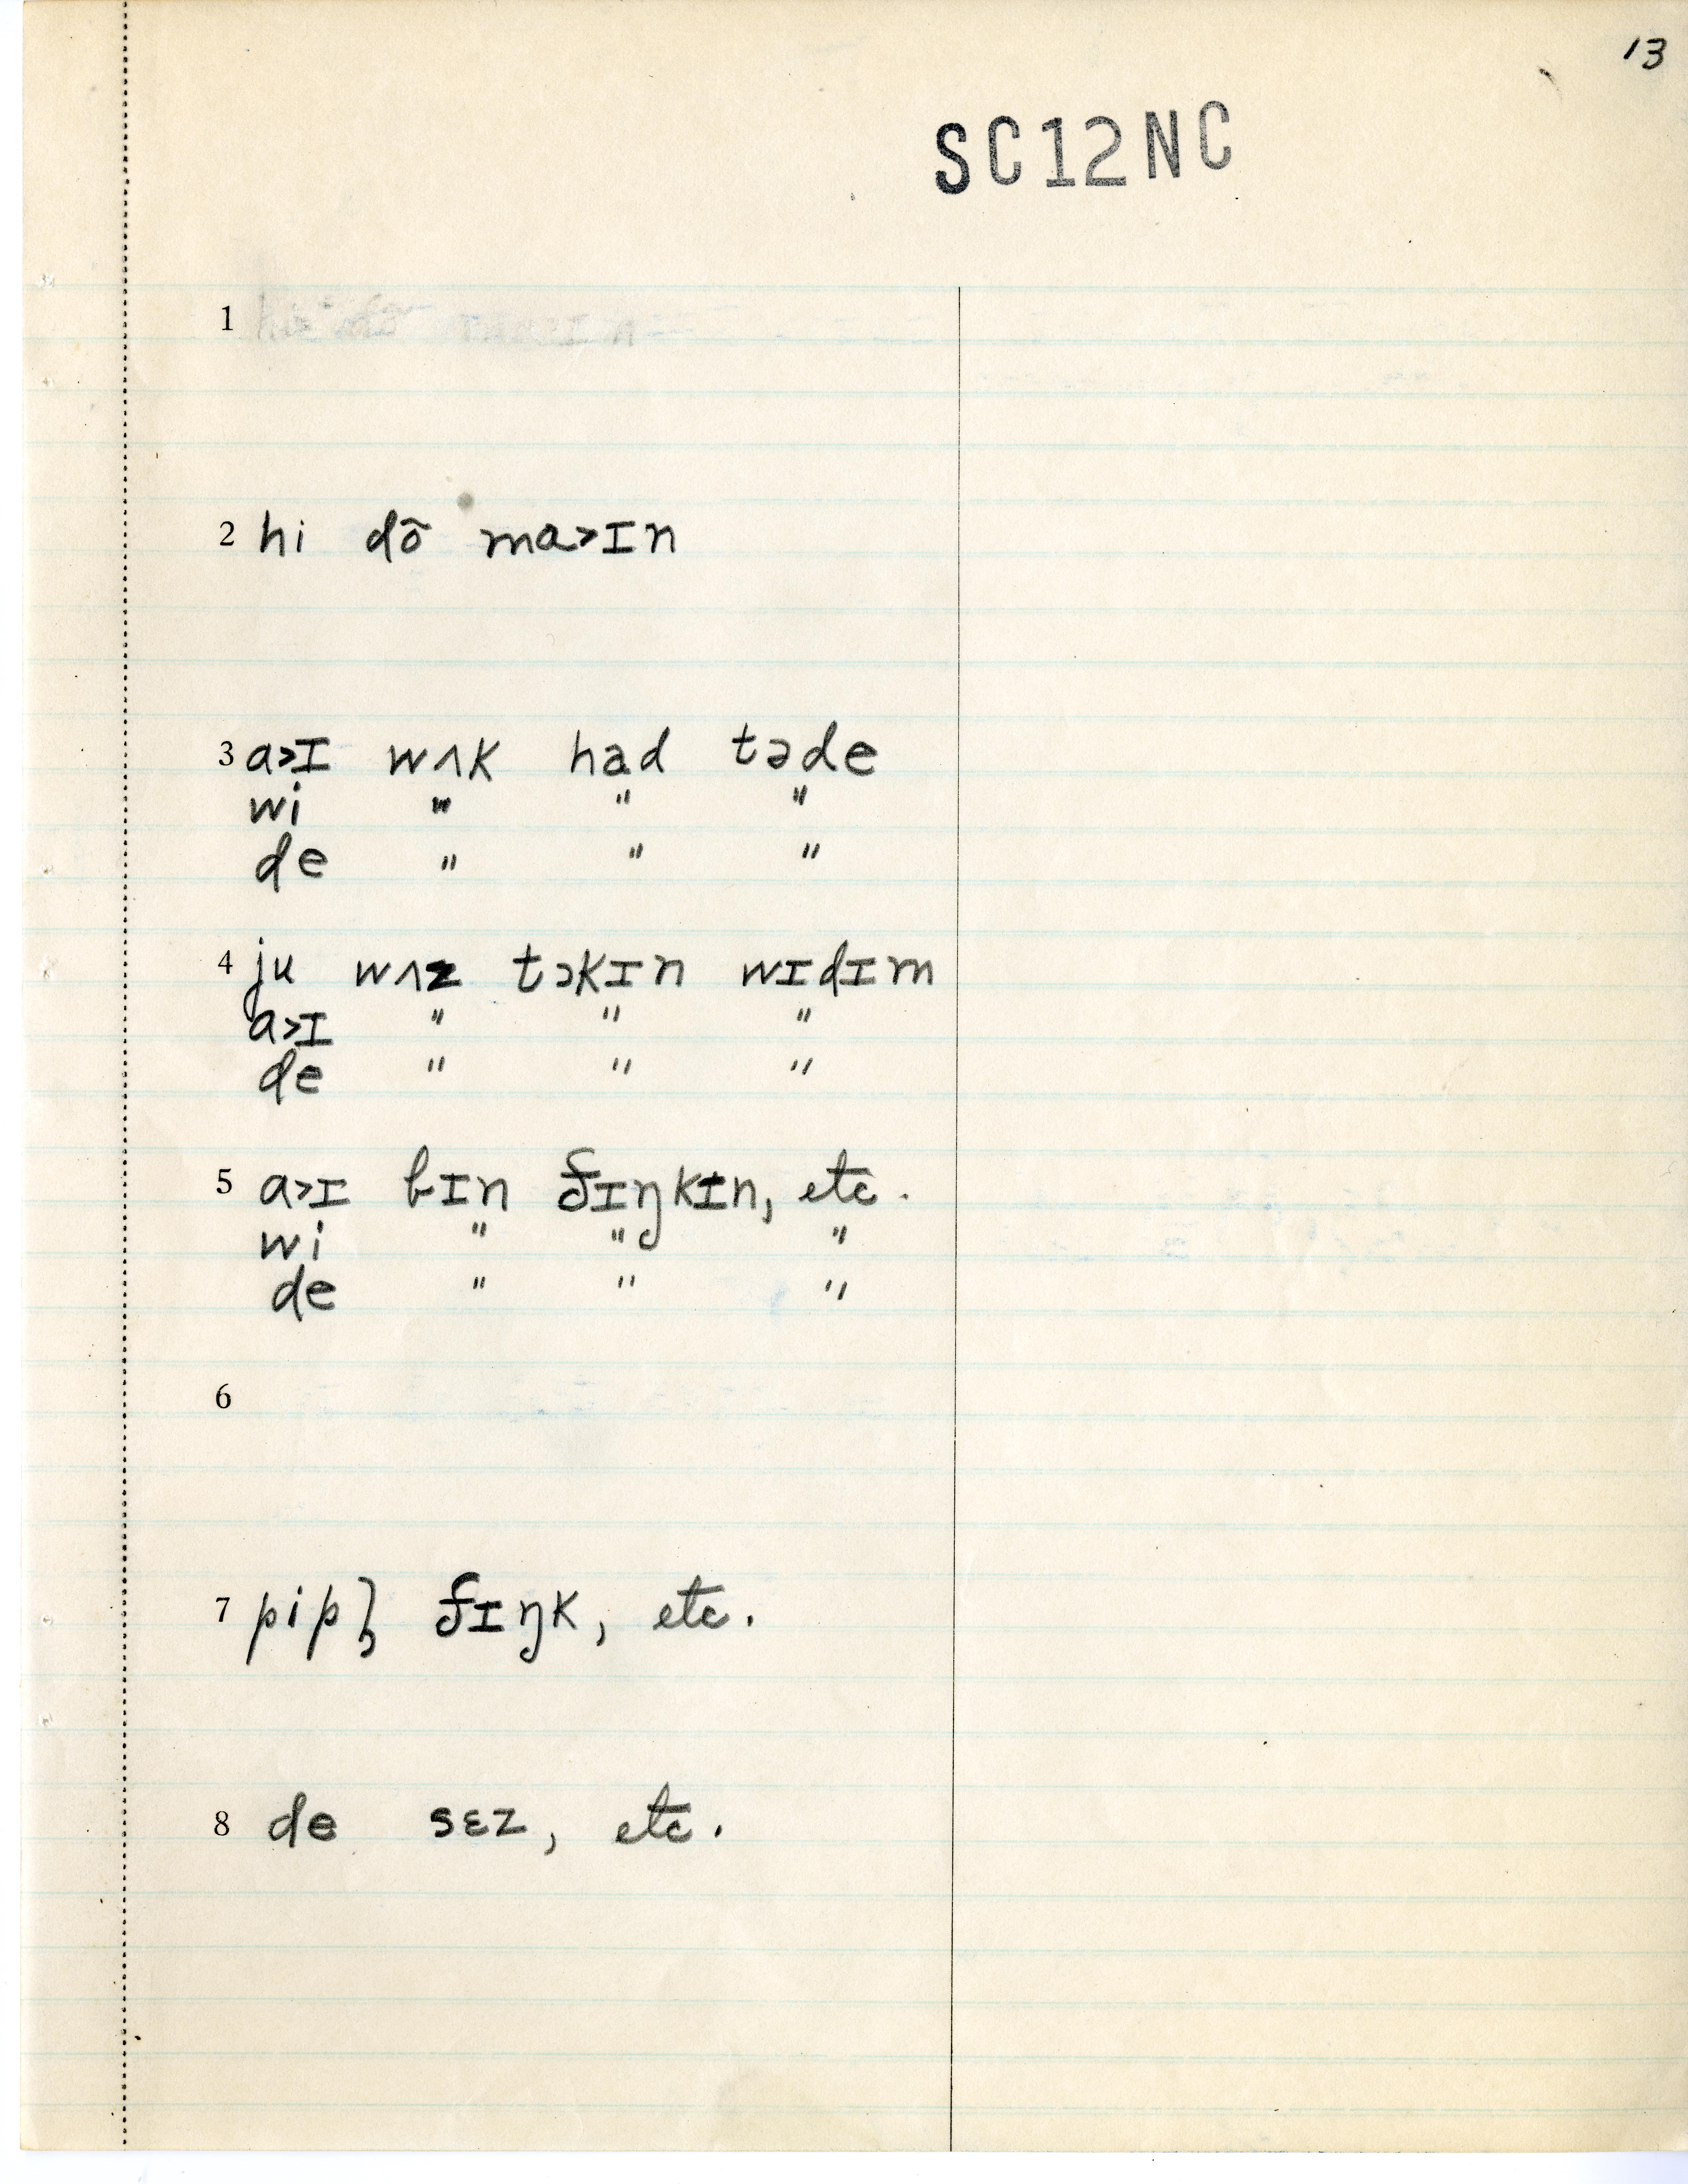 13
SC12NC
1
2 hi dõ ma>ɪn
3 a>ɪ wʌk had təde
wi " " "
de " " "
4 ju wʌz tɔkɪn wɪdɪm
a>ɪ " " "
de " " "
5 a>ɪ bɪn ʄɪŋkɪn, etc.
wi " " "
de " " "
6
7 pipḷ ʄɪŋk, etc.
8 de sɛz, etc.